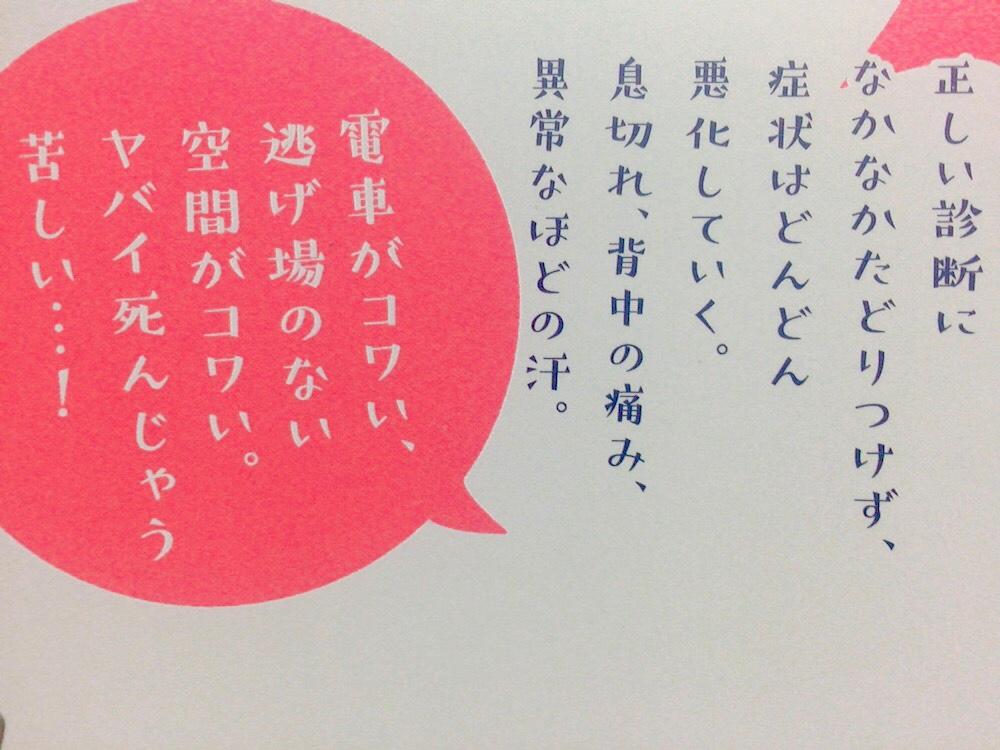 正しい診断に
なかなかたどりつけず、
症状はどんどん
悪化していく。
息切れ、背中の痛み、
異常なほどの汗。
電車がコワい、
逃げ場のない
空間がコワい。
ヤバイ死んじゃう
苦しい…！